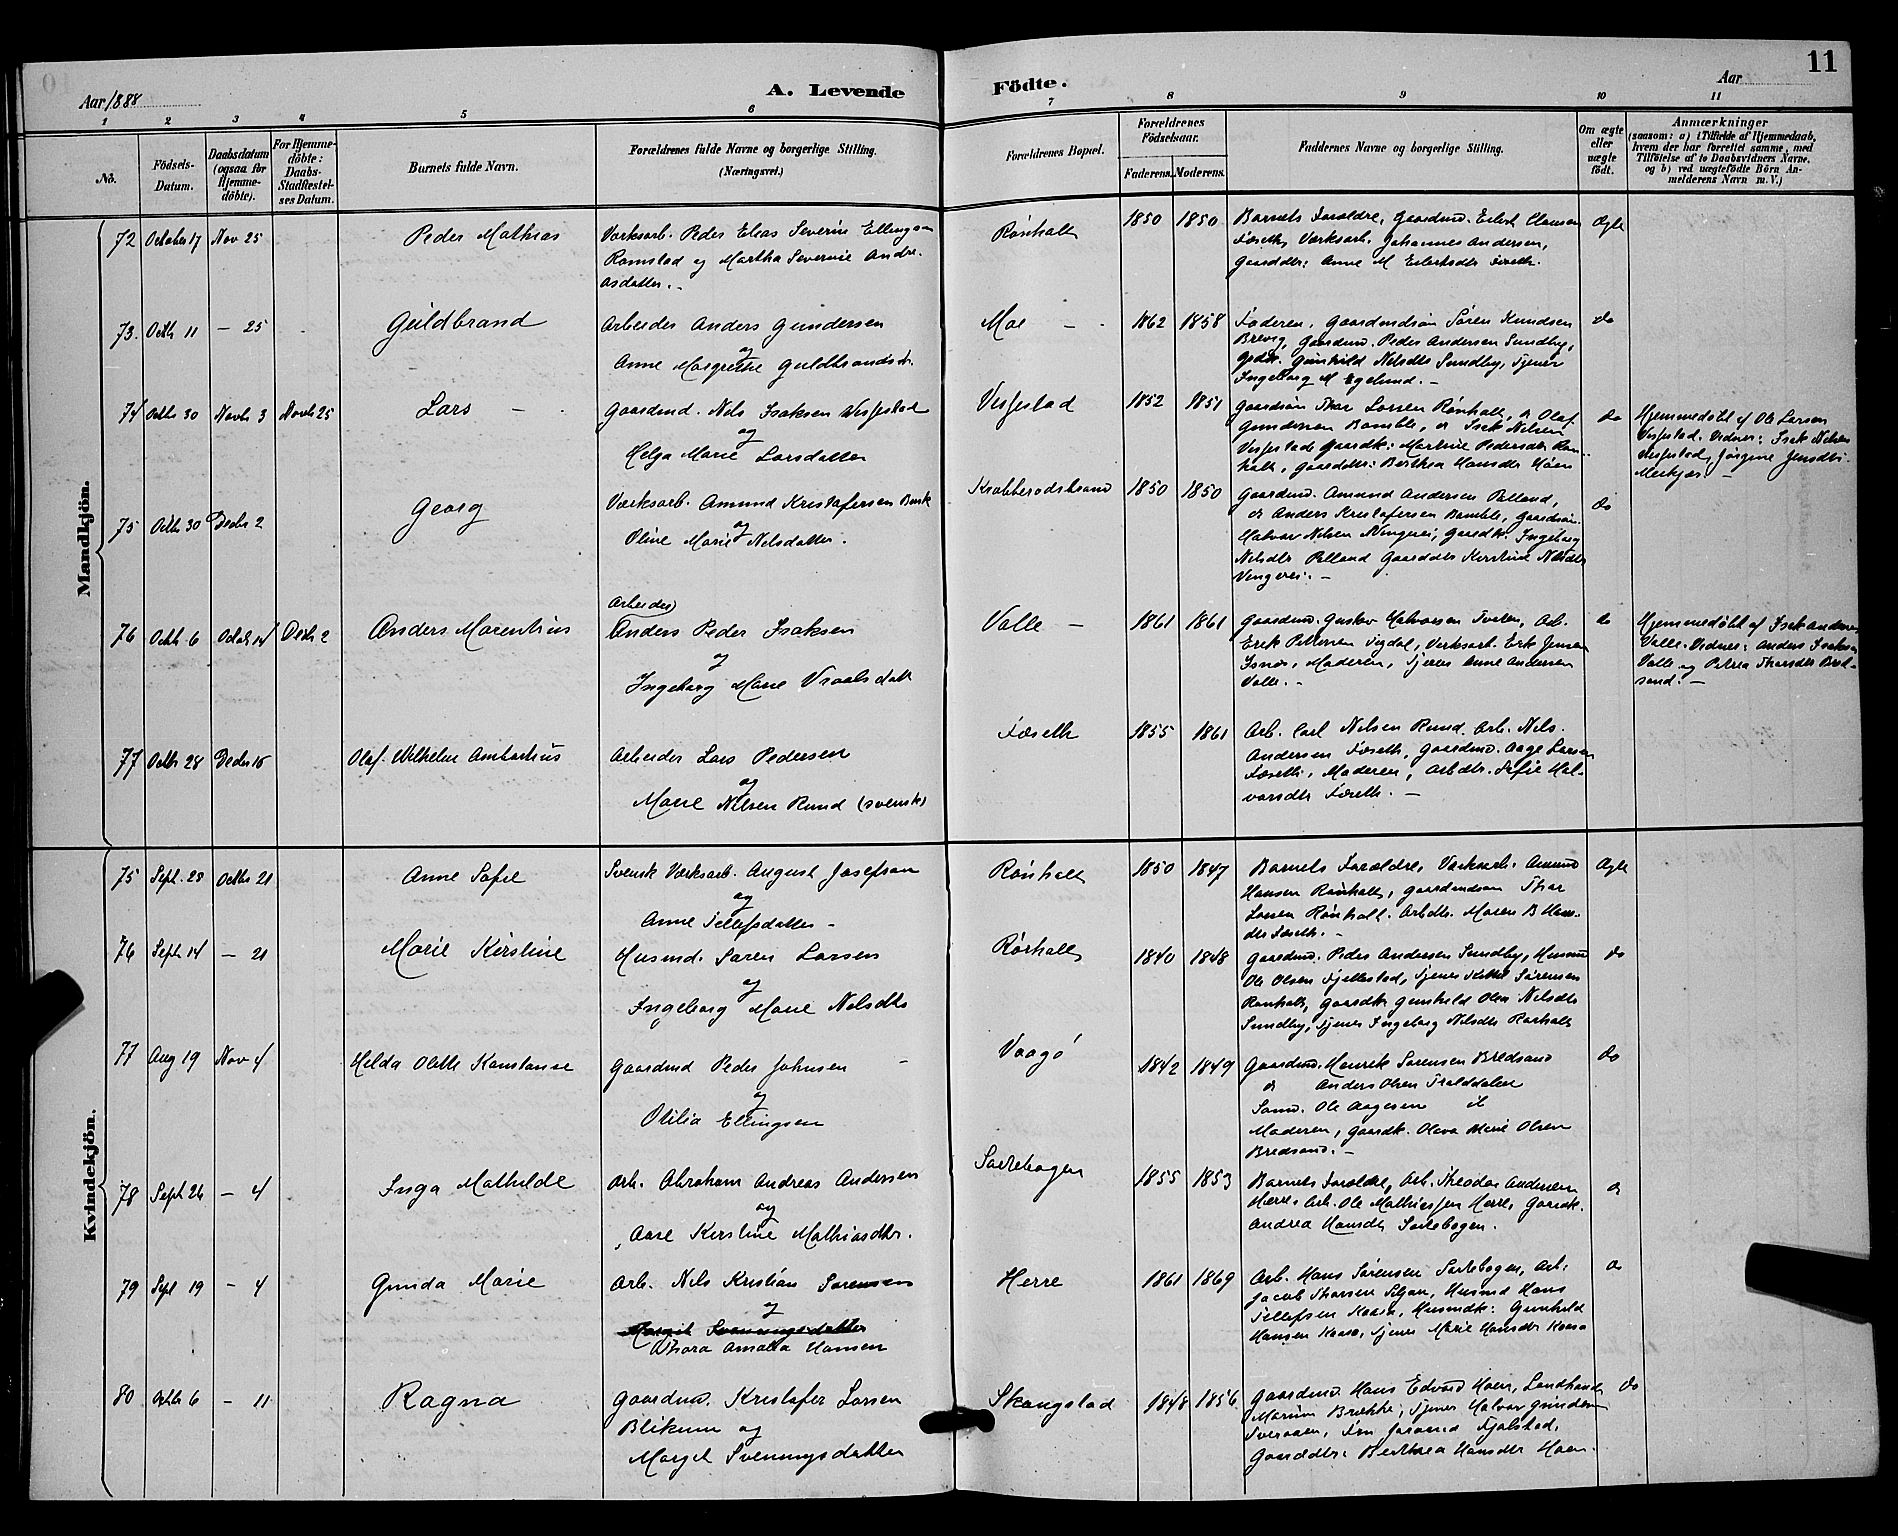 11
Aar 1888
A. Levende
Födte.
Aar
1 2 3 4 5 6 7 8 9 10 11
No.
Födsels-Datum.
Daabsdatum (ogsaa for Hjemme-döbte).
For Hjemme-döbte: Daabs-Stadfæstel-ses Datum.
Barnets fulde Navn.
Forældrenes fulde Navne og borgerlige Stilling. (Næringsvei.)
Forældrenes Bopæl.
Forældrenes Födselsaar.
Faderens. Moderens.
Faddernes Navne og borgerlige Stilling.
Om ægte eller uægte födt.
Anmærkninger
(saasom: a) i Tilfælde af Hjemmedaab, hvem der har forrettet samme, med Tilföielse af to Daabsvidners Navne, og b) ved uægtefödte Börn An-melderens Navn m. V.)
Mandkjön.
72 October 17 Nov 25 Peder Mathias
Værksarb. Peder Elias Severin Ellingsen
Romstad og Martha Severine Andre-
asdatter.
Rönholt 1850 1850
Barnets Forældre, Gaardmd. Eilert Clausen
Foseth, Værksarb. Johannes Andersen,
Gaarddtr: Anne M Eilertsdtr Foseth.
Ægte
73. Octbr 11 — 25 Guldbrand
Arbeider Anders Gundersen
og
Anne Margrethe Guldbrandsdtr.
Moe 1862 1858
Faderen, Gaardmdsön Sören Knudsen
Brevig, Gaardmd. Peder Andersen Sundby,
Gunhild Nilsdtr Sundby, Tjener
Ingeborg M Egelund.
do
74 Octbr 30 Novbr 3 Novbr 25 Lars
Gaardmd. Nils Isaksen Vissestad
og
Helga Marie Larsdatter
Vissestad 1852 1851
Gaardsön Thor Larsen Rönholt, do Olaf
Gundersen Bamble, do Isak Nilsen
Vissestad Gaardk: Martine Pedersdtr Rön-
holt, Gaarddtr: Berthea Hansdtr Höen
do
Hjemmedöbt af Ole Larsen
Vissestad. Vidner: Isak Nilsen
Vissestad, Jörgine Jensdtr
75 Octbr 30 Decbr 2 Georg
Værksarb. Amund Kristofersen
og
Oline Marie Nilsdatter.
Krabberödstrand 1850 1850
Gaardmd. Amund Andersen
do Anders Kristofersen Bamble, Gaardsön
Halvor Nilsen Ingeborg
Nilsdtr Gaarddtr Kirstine Nilsdtr
do
76 Octbr 6 Octbr 14 Decbr 2 Anders Marentius
Arbeider
Anders Peder Isaksen
og
Ingeborg Marie Vraalsdatt
Valle 1861 1861
Gaardmd. Gustav Halvorsen Tveten, Arb.
Erik Pettersen Sigdal, Værksarb. Erk Jensen
Isnes, Moderen, Tjener Anne Andersen
Valle.
do
Hjemmedöbt af Isak Andersen
Valle. Vidner: Anders Isaksen
Valle og Petrea Thorsdtr Bred-
sand.
77 Octbr 28 Decbr 16 Olaf Wilhelm Ambortius
Arbeider Lars Pedersen
og
Marie Nilsen Rund (svensk)
Foseth 1855 1861
Arb. Carl Nilsen Rund. Arb. Nils
Andersen Foseth, Gaardmd. Aage Larsen
Foseth, Moderen, Arbdtr. Sofie Hal-
vorsdtr Foseth.
Kvindekjön.
75 Sept. 23 Octbr 21 Anne Sofie
Svensk Værksarb. August Josefson
og
Anne Tellefsdatter
Rönholt 1850 1847
Barnets Forældre, Værksarb. Amund
Hansen Rönholt, Gaardmdsön Thor
Larsen Rönholt. Arbdtr. Maren B Hans-
dtr Foseth.
Ægte
76 Septbr 14 — 21 Marie Kirstine
Husmd. Sören Larsen
og
Ingeborg Marie Nilsdtr
Rörholt 1840 1848
Gaardmd. Peder Andersen Sundby, Husmd
Ole Olsen Fjellestad, Tjener Kittil Sörensen
Rörholt, Gaardk Gunhild Olea Nilsdtr
Sundby, Tjener Ingeborg Nilsdtr Rorholt
do
77 Aug 19 Nov 4 Hilda Othilie Konstanse
Gaardmd Peder Johnsen
og
Otilia Ellingsen
Vaagö 1842 1849
Gaardmd. Henrik Sörensen Bredsand
do Anders Olsen Traldalen
Sömd. Ole Aagesen
Moderen, Gaardk. Olava Marie Olsen
Bredsand.
do
78 Septr 26 — 4 Inga Mathilde
Arb. Abraham Andreas Andersen
og
Aase Kirstine Mathiasdtr.
Sortebogen 1855 1853
Barnets Forældre, Arb. Theodor Andersen
Herre. Arb. Ole Mathiassen Herre, Gaardk.
Andrea Hansdtr Sortebogen.
do
79 Sept 19 — 4 Gunda Marie
Arb. Nils Kristian Sörensen
og
Margit Svenningsdatter
Thora Amalia Hansen
Herre 1861 1869
Arb. Hans Sörensen Sortebogen, Arb:
Jacob Thorsen Husmd Hans
Tellefsen Kaasa, Husmdk: Gunhild
Hansen Kaasa, Tjener Marie Hansdtr Kaasa
do
80 Octbr 6 — 11 Ragna
Gaardmd. Kristofer Larsen
Blikum og
Margit Svenningsdatter
Skougstad 1848 1856
Gaardmd. Hans Edvard Hoen, Landhand.
Brække, Tjener Halvor Gunders
Fjelstad,
Gaarddtr: Berthea Hansdtr Hoen.
do